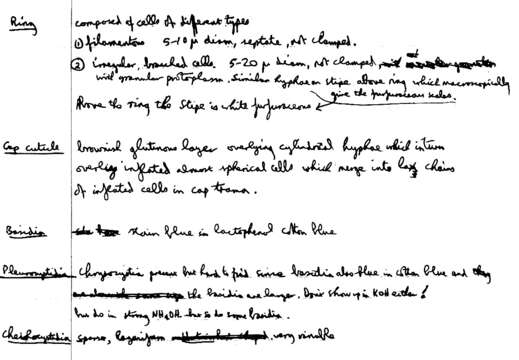 Ring composed of cells of different types
① filamentous 5-10 µ diam, septate, not clamped.
② irregular, branched cells. 5-20 µ diam, not clamped,
with granular protoplasm. Similar hyphae on stipe above ring which macroscopically
give the furfuraceous scales.
Above the ring the stipe is white furfuraceous
Cap cuticle brownish glutenous layer overlying cylindrical hyphae which inturn
overlies inflated almost spherical cells which merge into lax chains
of inflated cells in cap trama.
Basidia stain blue in lactophenol cotton blue
Pleurocystidia Chrysocystidia present but hard to find since basidia also blue in cotton blue and
the basidia are larger. Don't show up in KOH either!
but do in strong NH4OH but so do some basidia.
Cheilocystidia sparse, lageniform very variable